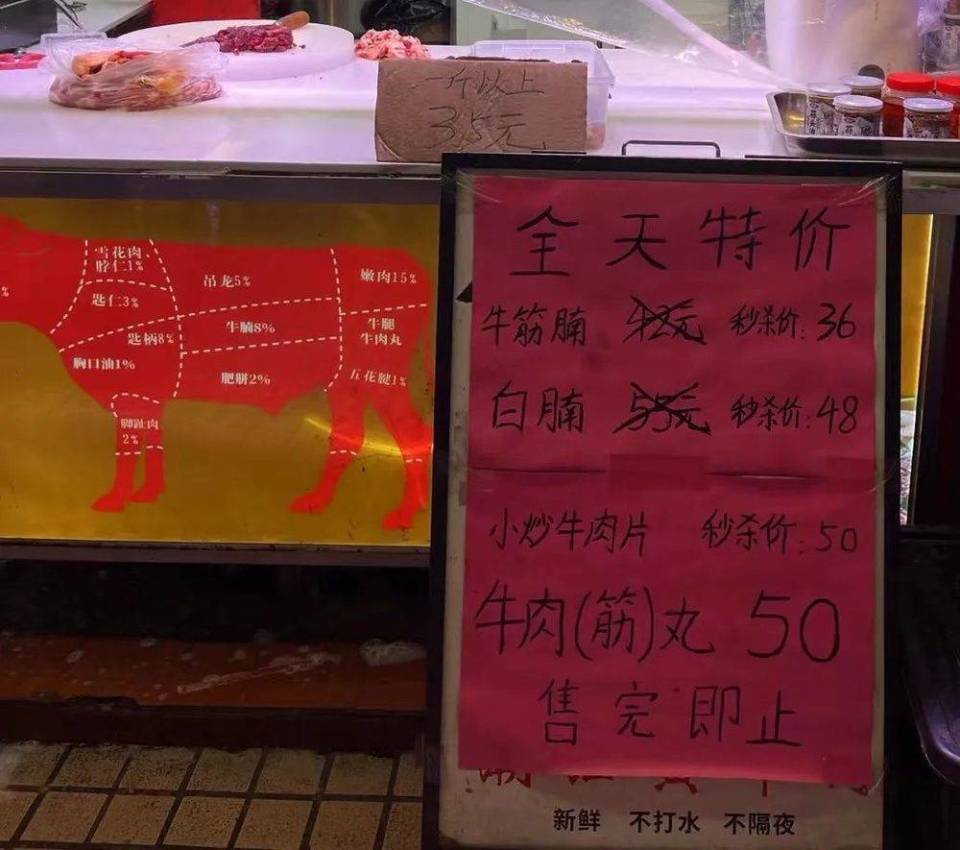 一斤以上
35元
雪花肉、
脖仁1%
吊龙5%
嫩肉15%
%
匙仁3%
牛腩8%
牛腿
牛肉丸
匙柄8%
胸口油1%
肥胼2%
五花腱1%
脚趾肉
2%
全天特价
牛筋腩 42元 秒杀价:36
白腩 55元 秒杀价:48
小炒牛肉片 秒杀价:50
牛肉(筋)丸 50
售完即止
新鲜 不打水 不隔夜